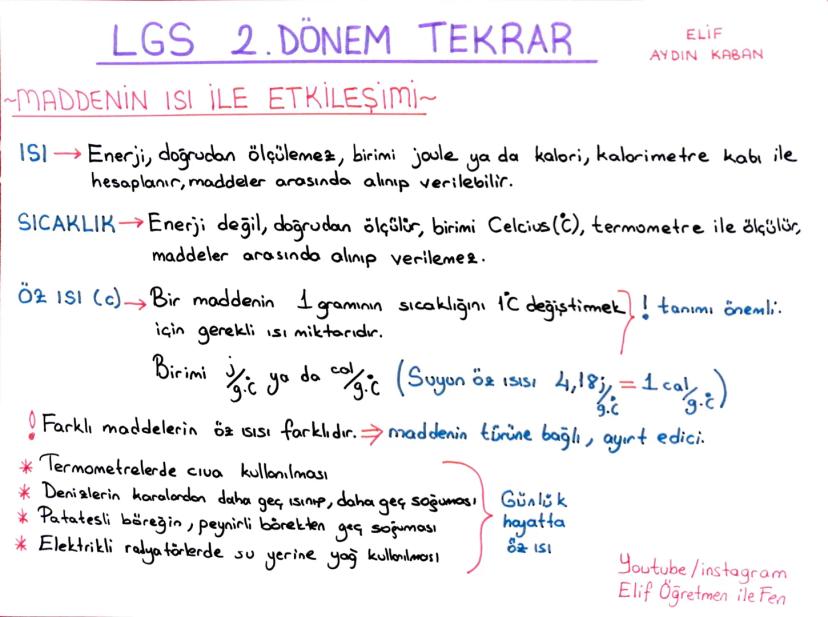 LGS 2. DÖNEM TEKRAR
ELİF
AYDIN KABAN
~MADDENİN ISI İLE ETKİLEŞİMİ~
ISI → Enerji, doğrudan ölçülemez, birimi joule ya da kalori, kalorimetre kabı ile
hesaplanır, maddeler arasında alınıp verilebilir.
SICAKLIK → Enerji değil, doğrudan ölçülür, birimi Celcius (°C), termometre ile ölçülür,
maddeler arasında alınıp verilemez.
ÖZ ISI (c) → Bir maddenin 1 gramının sıcaklığını 1°C değiştirmek } ! tanımı önemli.
için gerekli ısı miktarıdır.
Birimi j/g.°C ya da cal/g.°C (Suyun öz ısısı 4,18j/g.°C = 1 cal/g.°C)
! Farklı maddelerin öz ısısı farklıdır. ⇒ maddenin türüne bağlı, ayırt edici.
* Termometrelerde cıva kullanılması
* Denizlerin karalardan daha geç ısınıp, daha geç soğuması
* Patatesli böreğin, peynirli börekten geç soğuması
* Elektrikli radyatörlerde su yerine yağ kullanılması
Günlük
hayatta
öz ısı
Youtube/instagram
Elif Öğretmen ile Fen